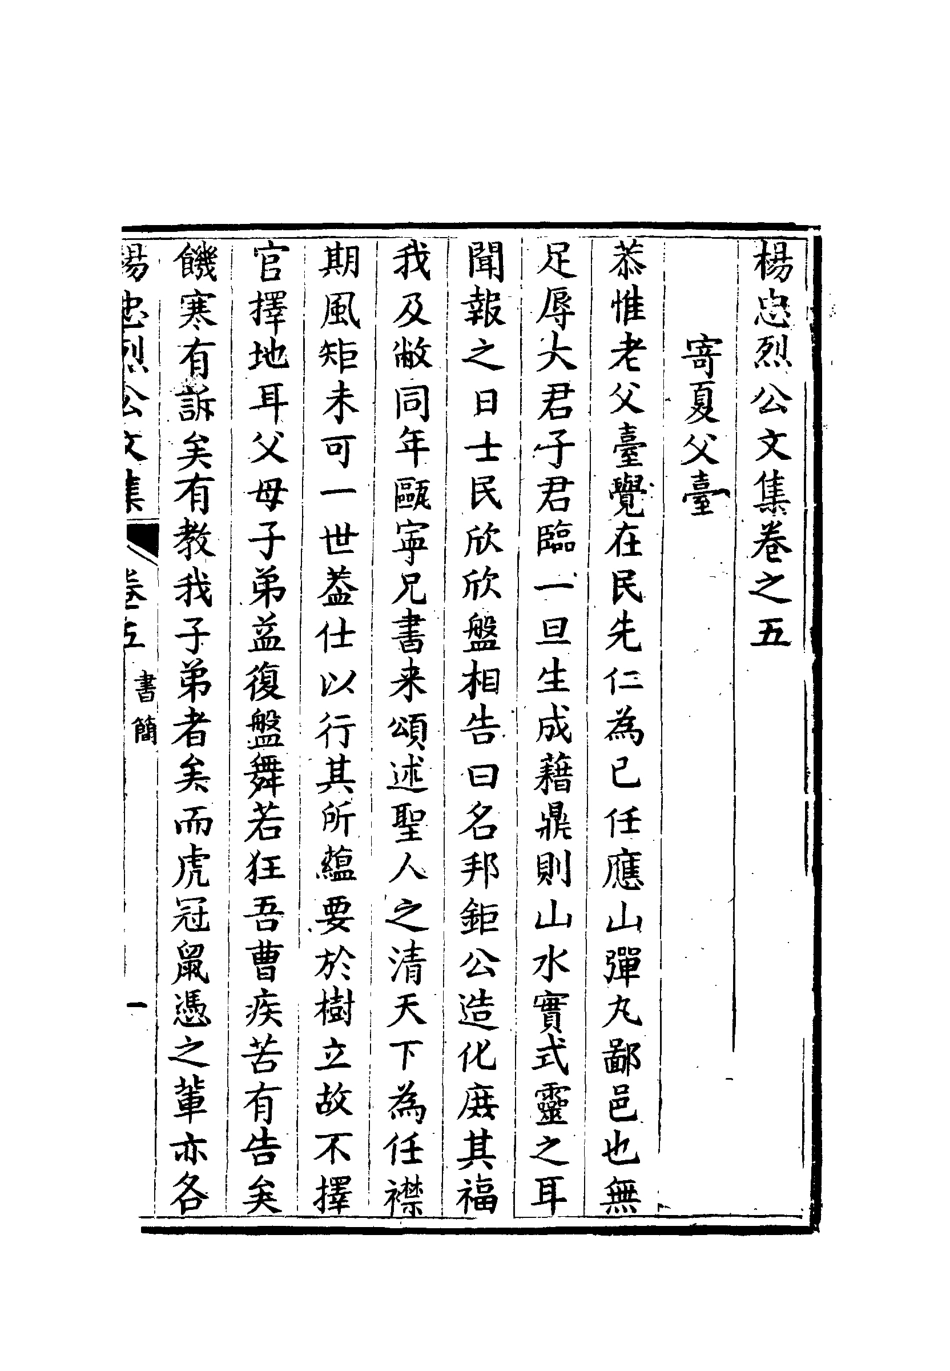 楊忠烈公文集卷之五
寄夏父臺
恭惟老父臺覺在民先仁為已任應山彈丸鄙邑也無
足辱大君子君臨一旦生成藉鼎則山水實式靈之耳
聞報之日士民欣欣盤相告曰名邦鉅公造化庶其福
我及敝同年甌寧兄書来頌述聖人之清天下為任襟
期風矩未可一世葢仕以行其所蘊要於樹立故不擇
官擇地耳父母子弟益復盤舞若狂吾曹疾苦有告矣
饑寒有訴矣有教我子弟者矣而虎冠鼠憑之軰亦各
楊忠烈公文集 卷五 書簡 一